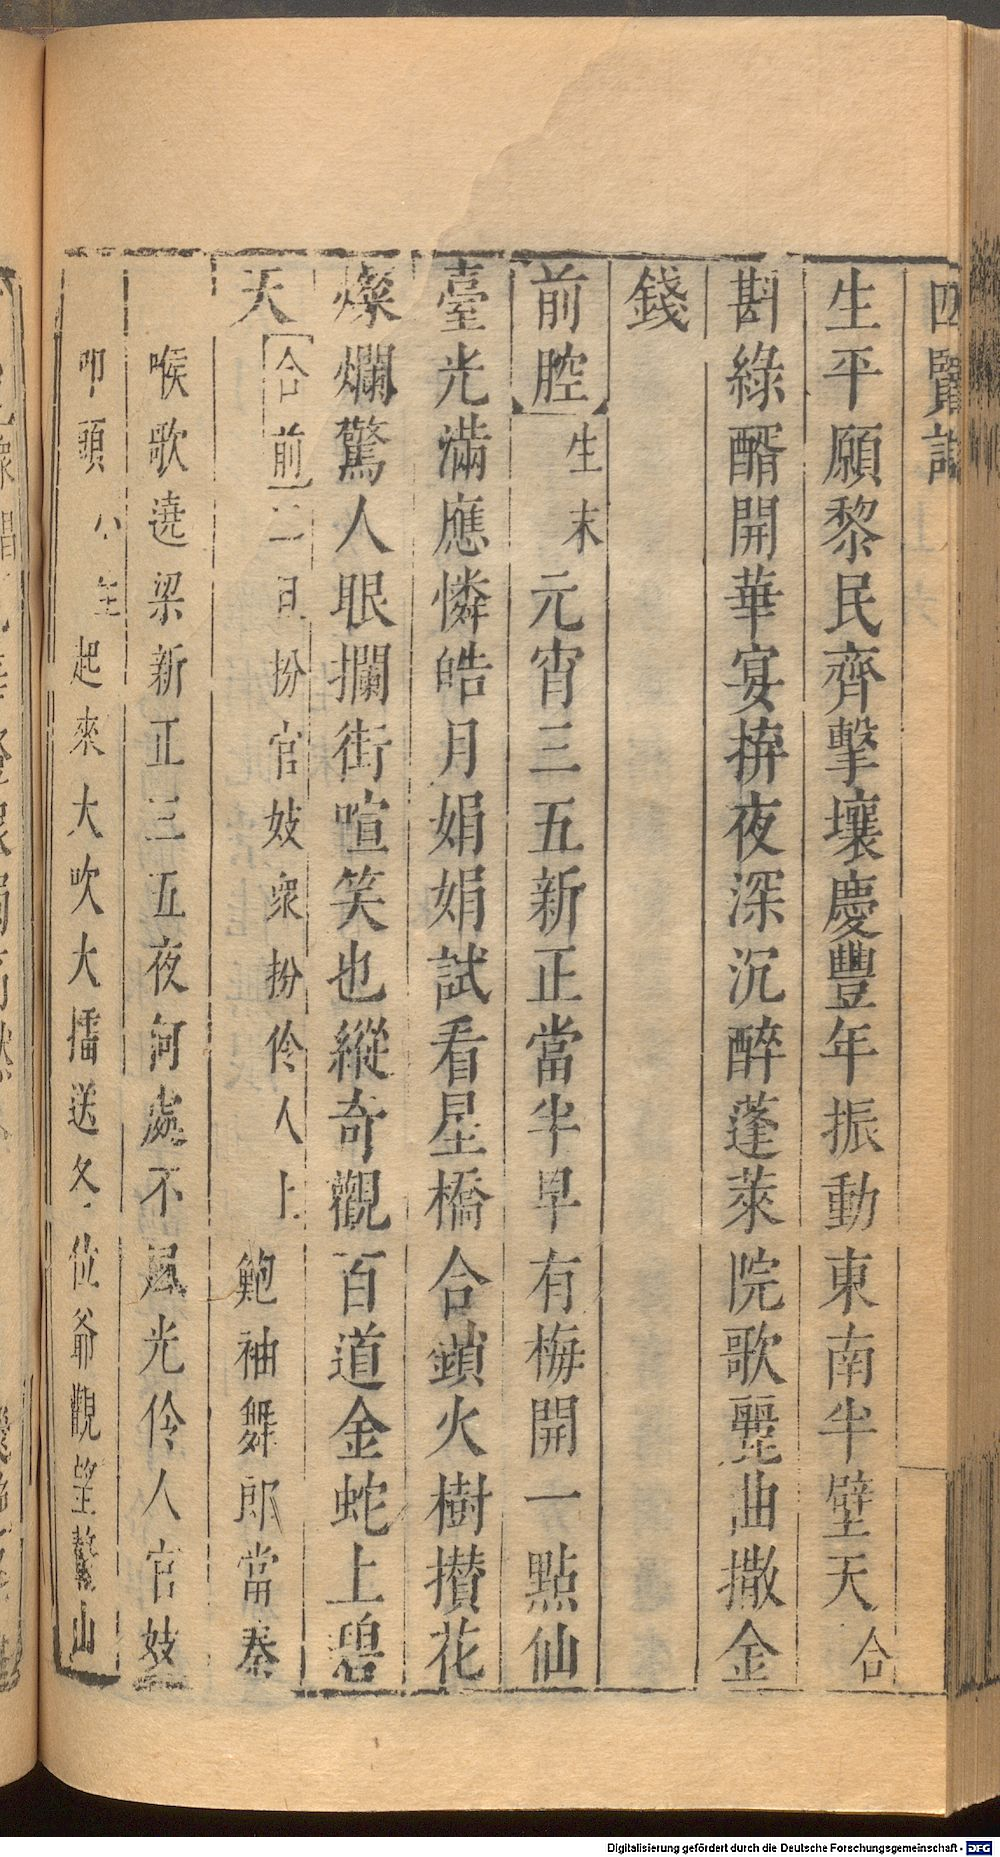 四賢記
生平願黎民齊擊壤慶豐年振動東南半壁天合
斟綠醑開華宴拚夜深沉醉蓬萊院歌甖曲撒金
錢
前腔生末元宵三五新正當半早有梅開一點仙
臺光滿應憐皓月娟娟試看星橋合鎖火樹攢花
燦爛驚人眼攔街喧笑也縱奇觀百道金蛇上碧
天合前二旦扮官妓衆扮伶人上鮑袖舞郎當秦
喉歌遶梁新正三五夜何處不風光伶人官妓
叩頭小生起來大吹大擂送各位爺觀望鰲山
Digitalisierung gefördert durch die Deutsche Forschungsgemeinschaft - DFG